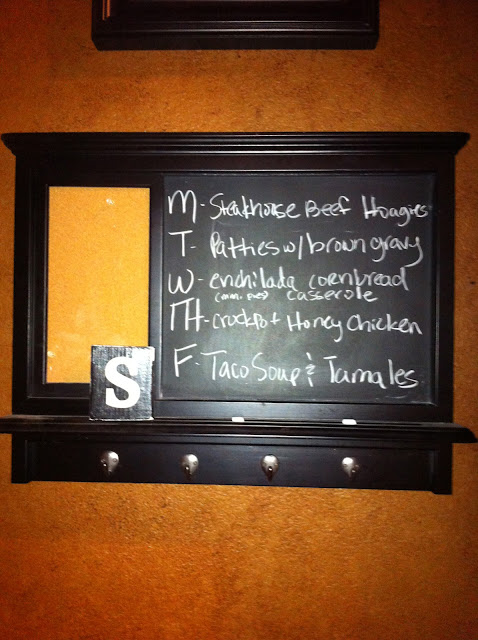 M- Steakhouse Beef Hoagies
T- Patties w/ brown gravy
W- enchilada cornbread
(mini pies) casserole
TH- crockpot Honey Chicken
F- Taco Soup & Tamales
S